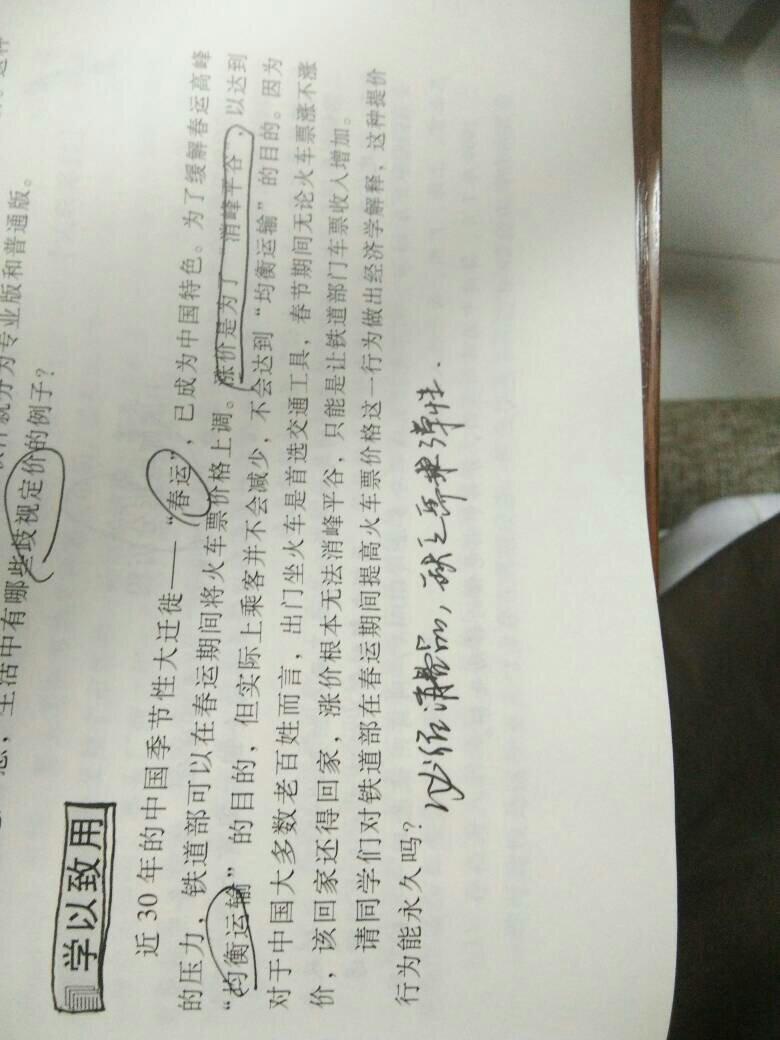 生活中有哪些歧视定价的例子？
学以致用
近30年的中国季节性大迁徙——“春运”，已成为中国特色。为了缓解春运高峰
的压力，铁道部可以在春运期间将火车票价格上调。涨价是为了“消峰平谷”，以达到
“均衡运输”的目的，但实际上乘客并不会减少，不会达到“均衡运输”的目的。因为
对于中国大多数老百姓而言，出门坐火车是首选交通工具，春节期间无论火车票涨不涨
价，该回家还得回家，涨价根本无法消峰平谷，只能是让铁道部门车票收入增加。
请同学们对铁道部在春运期间提高火车票价格这一行为做出经济学解释，这种提价
行为能永久吗？
消费品，缺乏 弹性.